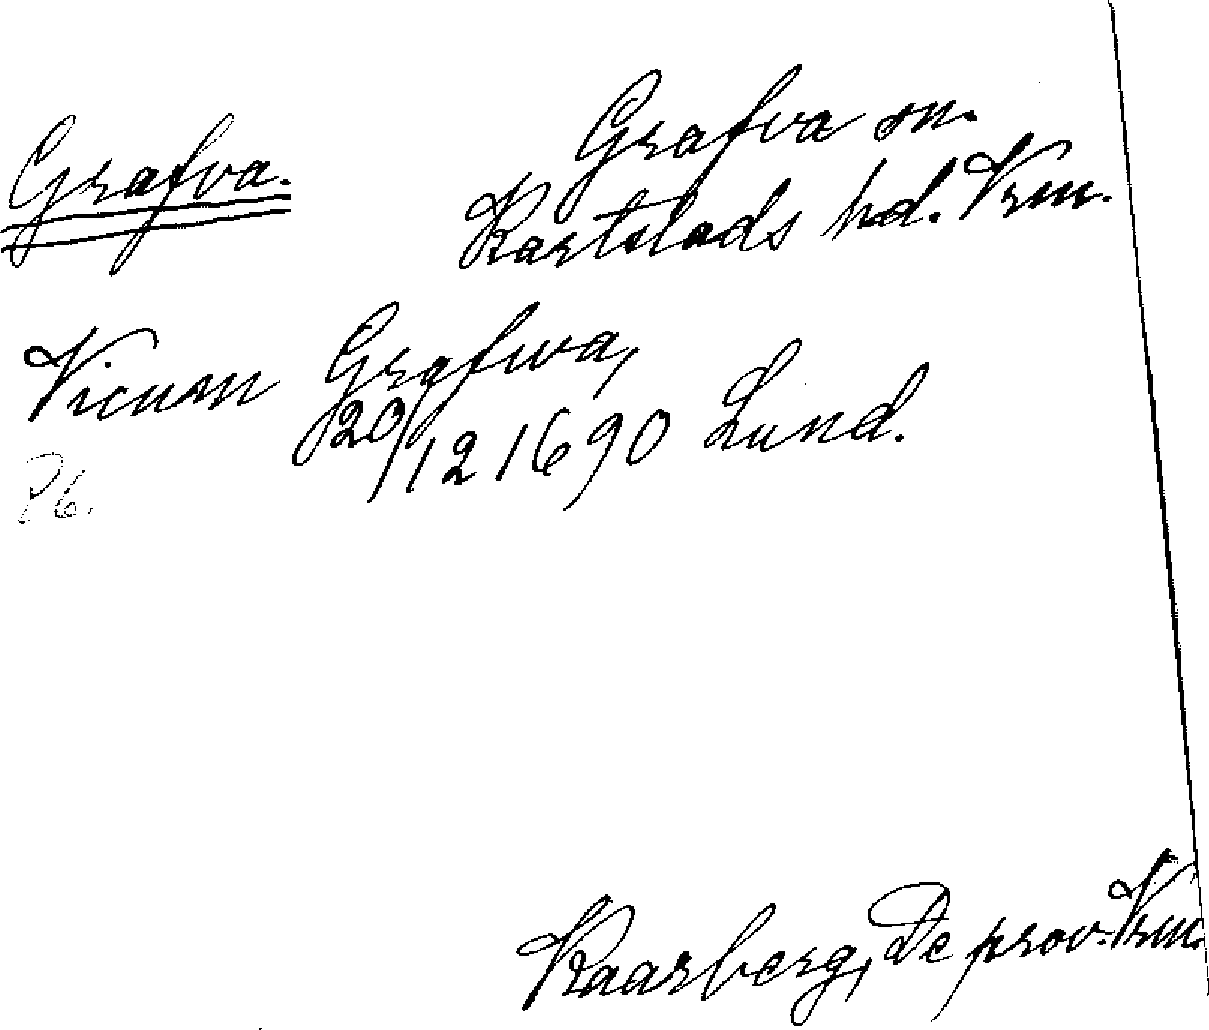 Grafva.
Grafva sn.
Karlstads hd. Vrm.
Vicuson Grafwa,
20/12 1690 Lund.
P6.
Kaarberg, De prov. Vrm.